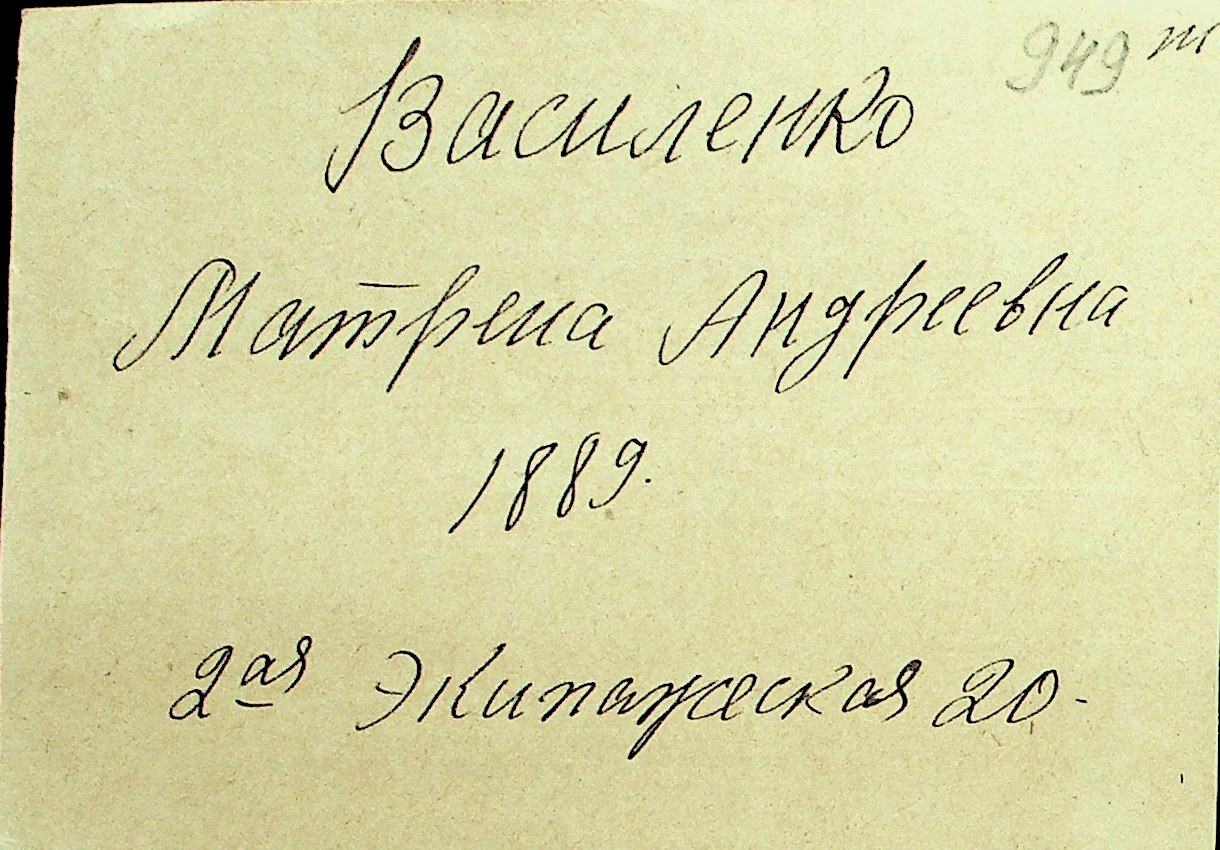 949 т
Василенко
Матрена Андреевна
1889.
2ая Экипажеская 20-